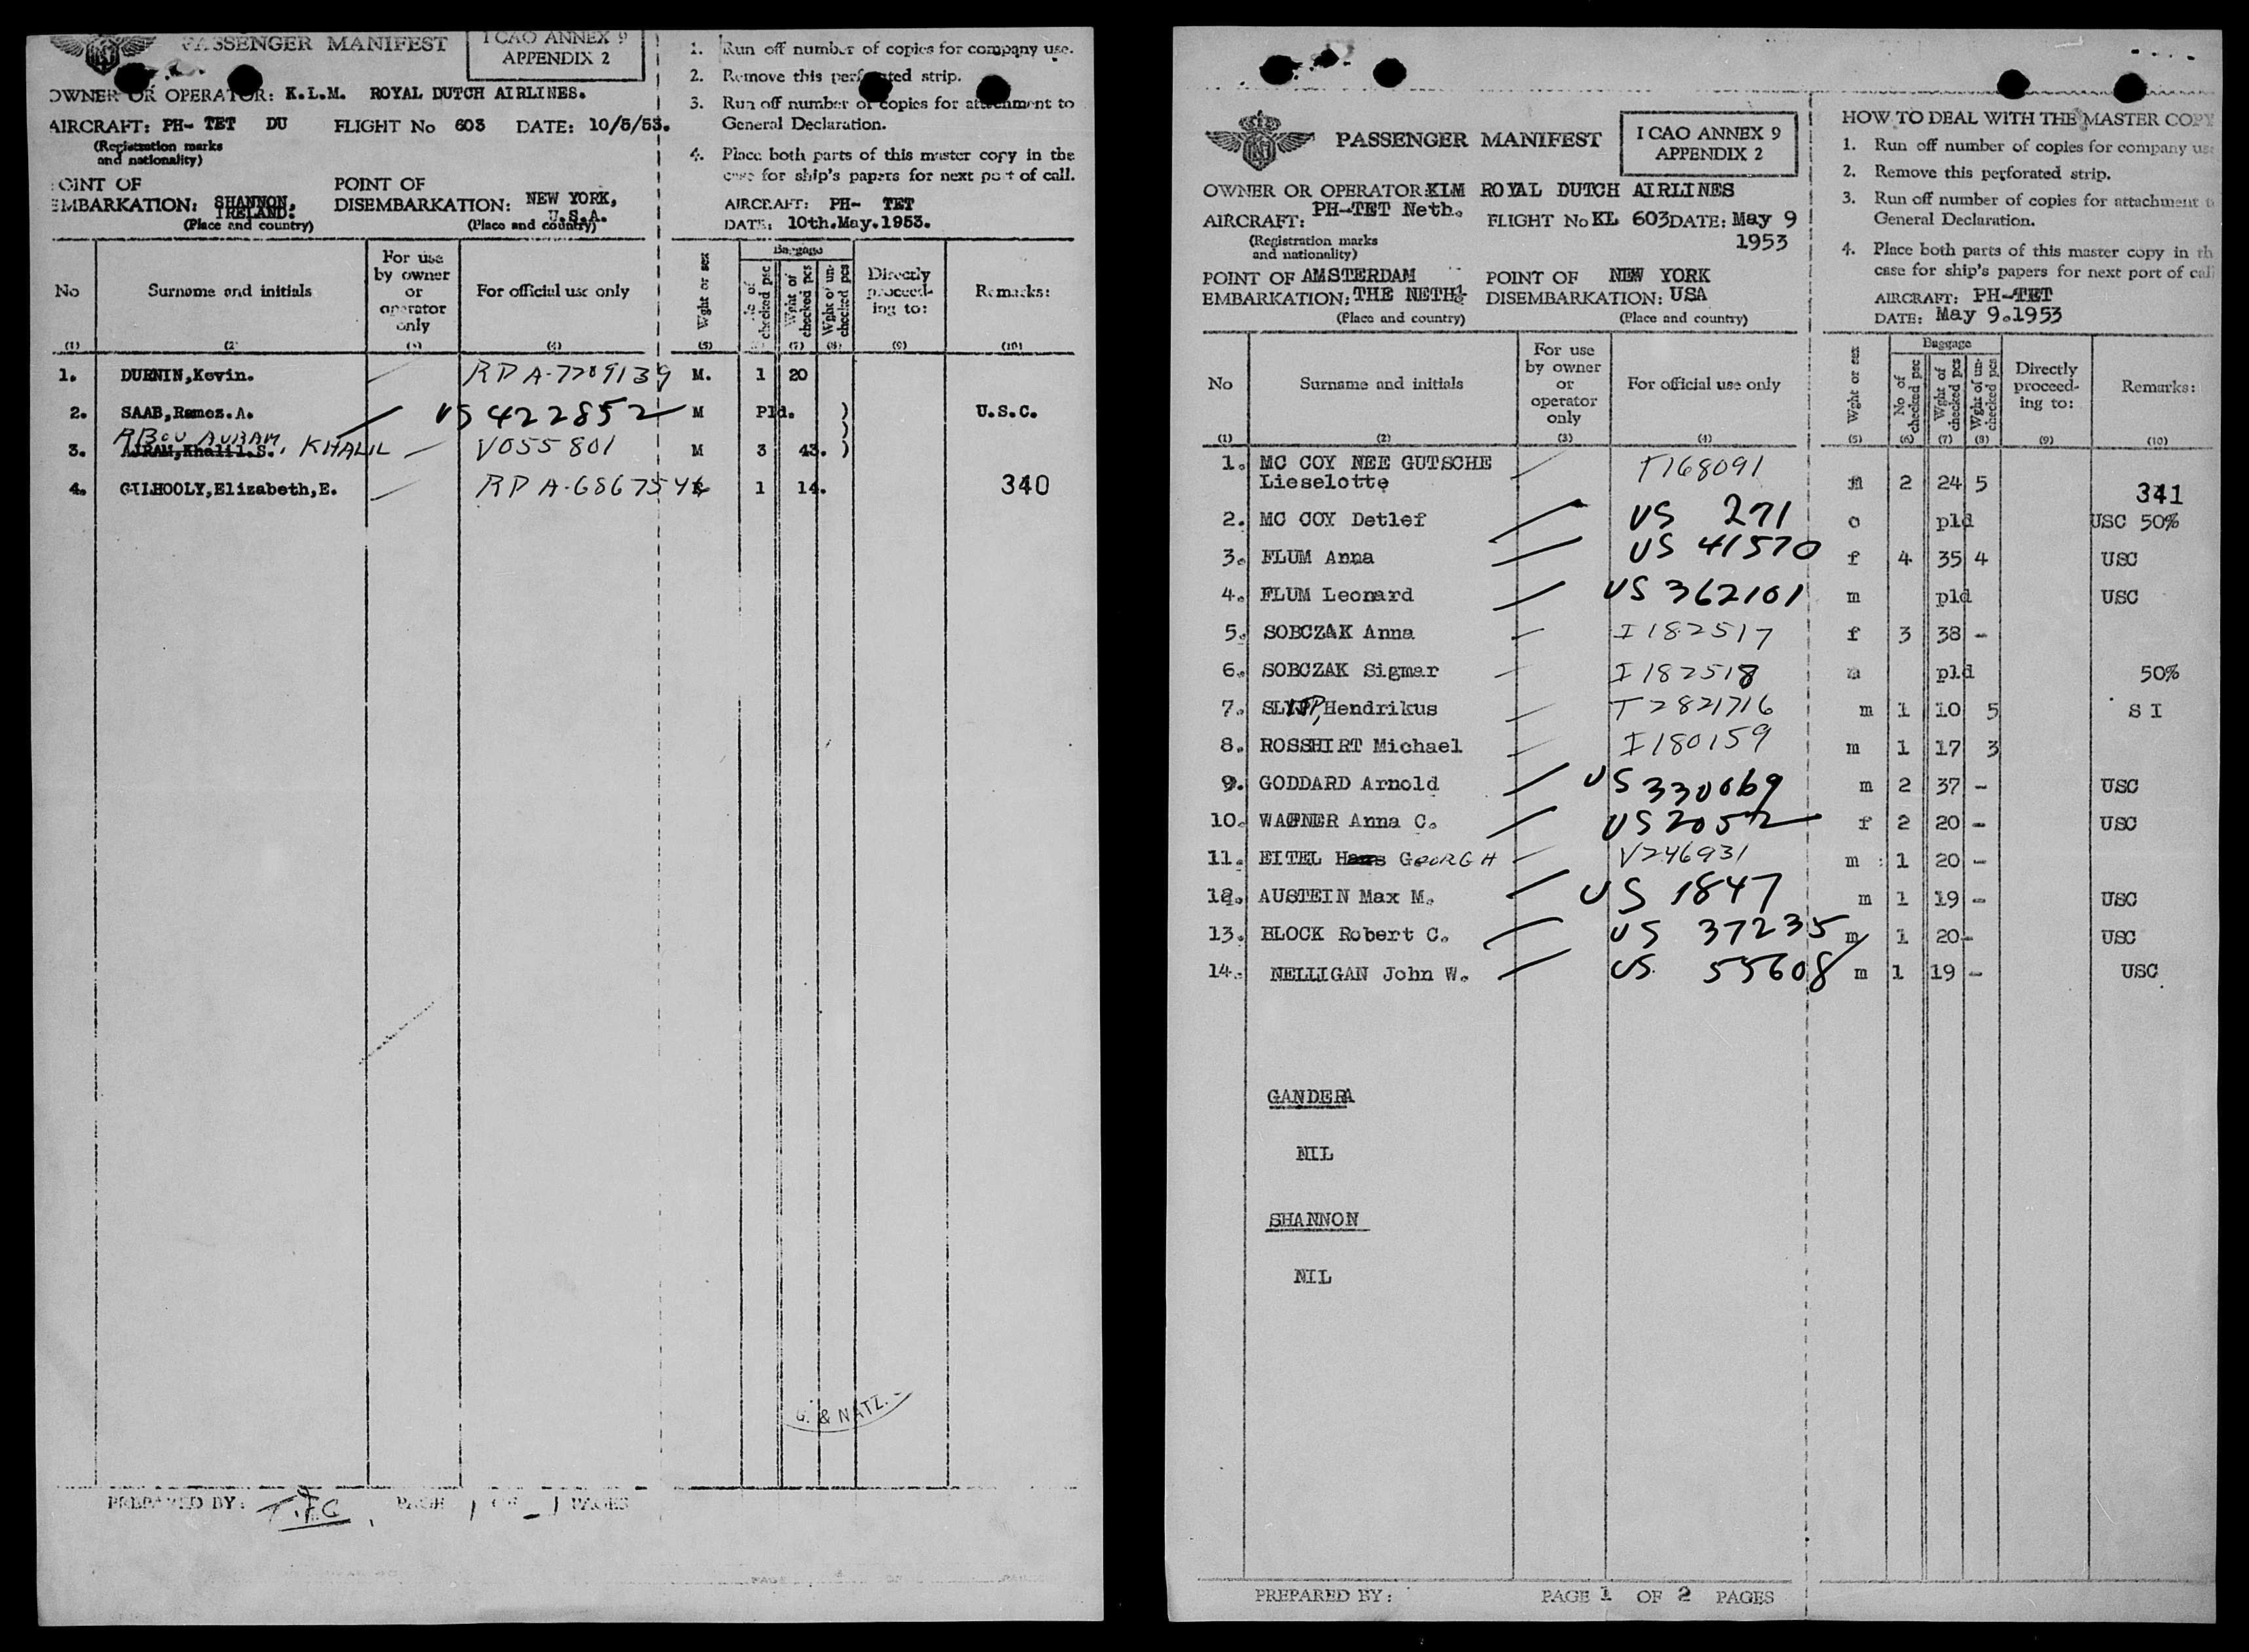 PASSENGER MANIFEST
ICAO ANNEX 9
APPENDIX 2
OWNER OR OPERATOR: K.L.M. ROYAL DUTCH AIRLINES.
AIRCRAFT: PH- TET DU FLIGHT No 603 DATE: 10/5/53.
(Registration marks
and nationality)
POINT OF
EMBARKATION: SHANNON,
IRELAND.
(Place and country)
POINT OF
DISEMBARKATION: NEW YORK,
U.S.A.
(Place and country)
1. Run off number of copies for company use.
2. Remove this perforated strip.
3. Run off number of copies for attachment to
General Declaration.
4. Place both parts of this master copy in the
case for ship's papers for next port of call.
AIRCRAFT: PH- TET
DATE: 10th.May.1953.
No Surname and initials For use by owner or operator only For official use only Wght or sex Baggage No of checked psc Wght of checked pcs Wght of un-checked pcs Directly proceed-ing to: Remarks:
(1) (2) (3) (4) (5) (7) (8) (9) (10)
1. DURNIN,Kevin. RPA-7209139 M. 1 20
2. SAAB,Ramez.A. US 422852 M Pld. ) U.S.C.
ABOU AURAM, KHALIL
3. AJRAM,Khalil.S. V055801 M 3 43. )
4. GILHOOLY,Elizabeth,E. RPA-686754 1 14. 340
G. & NATZ.
PREPARED BY: T.F.G. PAGE 1 OF 1 PAGES
PASSENGER MANIFEST
ICAO ANNEX 9
APPENDIX 2
OWNER OR OPERATOR:KLM ROYAL DUTCH AIRLINES
AIRCRAFT: PH-TET Neth. FLIGHT No KL 603 DATE: May 9
1953
(Registration marks
and nationality)
POINT OF AMSTERDAM POINT OF NEW YORK
EMBARKATION: THE NETHL DISEMBARKATION: USA
(Place and country) (Place and country)
HOW TO DEAL WITH THE MASTER COPY
1. Run off number of copies for company use
2. Remove this perforated strip.
3. Run off number of copies for attachment to
General Declaration.
4. Place both parts of this master copy in th
case for ship's papers for next port of call
AIRCRAFT: PH-TET
DATE: May 9.1953
No Surname and initials For use by owner or operator only For official use only Wght or sex Baggage No of checked psc Wght of checked pcs Wght of un-checked pcs Directly proceed-ing to: Remarks:
(1) (2) (3) (4) (5) (6) (7) (8) (9) (10)
1. MC COY NEE GUTSCHE T168091
Lieselotte 2 24 5 341
2. MC COY Detlef US 271 o pld USC 50%
3. FLUM Anna US 41570 f 4 35 4 USC
4. FLUM Leonard US 362101 m pld USC
5. SOBCZAK Anna I182517 f 3 38 -
6. SOBCZAK Sigmar I182518 m pld 50%
7. SLYP, Hendrikus T2821716 m 1 10 5 S I
8. ROSSHIRT Michael I180159 m 1 17 3
9. GODDARD Arnold US 330069 m 2 37 - USC
10. WAGNER Anna C. US 2052 f 2 20 - USC
11. EITEL Hans GEORG H V246931 m 1 20 -
12. AUSTEIN Max M. US 1847 m 1 19 - USC
13. BLOCK Robert C. US 37235 m 1 20- USC
14. NELLIGAN John W. US 55608 m 1 19 - USC
GANDERA
NIL
SHANNON
NIL
PREPARED BY: PAGE 1 OF 2 PAGES